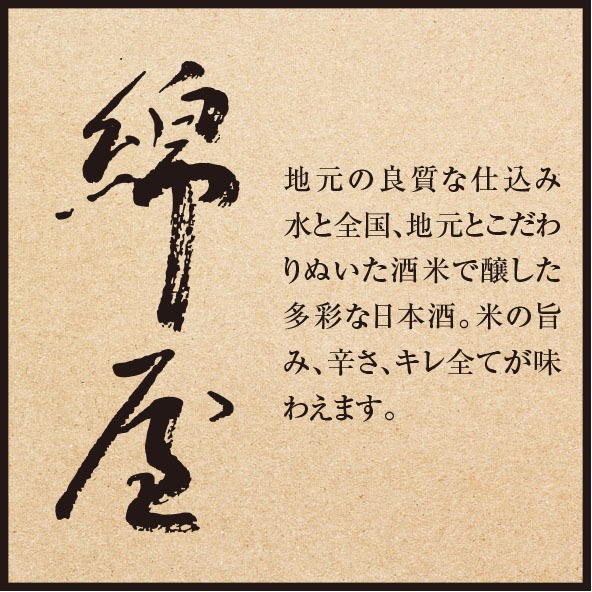 綿屋
地元の良質な仕込み
水と全国、地元とこだわ
りぬいた酒米で醸した
多彩な日本酒。米の旨
み、辛さ、キレ全てが味
わえます。